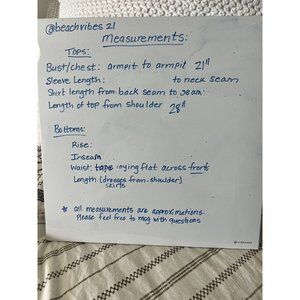 @beachvibes 21
Measurements:
Tops:
Bust/chest: armpit to armpit 21"
Sleeve Length: to neck seam
Shirt length from back seam to seam:
Length of top from shoulder 28"
Bottoms:
Rise:
Inseam
Waist: tape laying flat across front
Length (dresses from shoulder)
skirts
* all measurements are approximations.
Please feel free to msg with questions